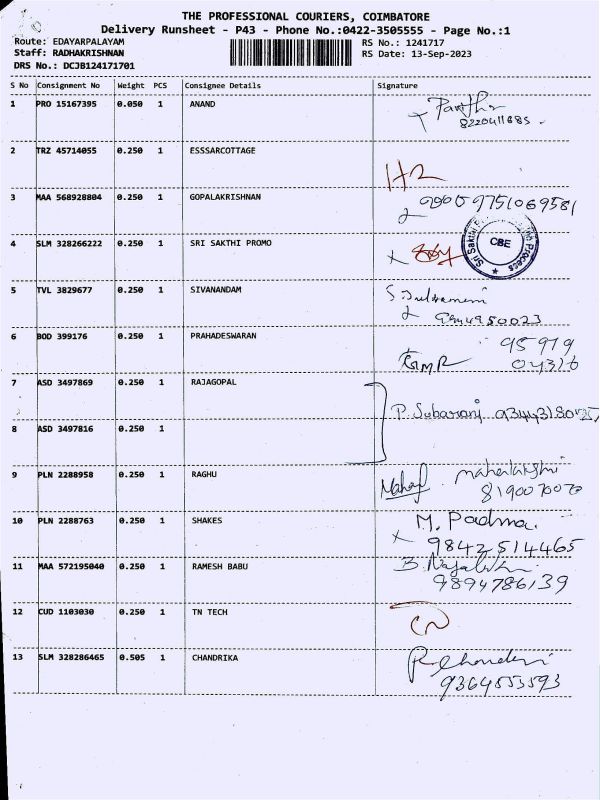 THE PROFESSIONAL COURIERS, COIMBATORE
Delivery Runsheet - P43 - Phone No.:0422-3505555 - Page No.:1
Route: EDAYARPALAYAM RS No.: 1241717
Staff: RADHAKRISHNAN RS Date: 13-Sep-2023
DRS No.: DCJB124171701
S No Consignment No Weight PCS Consignee Details Signature
1 PRO 15167395 0.050 1 ANAND
8220411685
2 TRZ 45714055 0.250 1 ESSSARCOTTAGE
3 MAA 568928804 0.250 1 GOPALAKRISHNAN
9751069581
4 SLM 328266222 0.250 1 SRI SAKTHI PROMO
Sri Sakthi Process
CBE
5 TVL 3829677 0.250 1 SIVANANDAM
6 BOD 399176 0.250 1 PRAHADESWARAN
95979
04316
7 ASD 3497869 0.250 1 RAJAGOPAL
8 ASD 3497816 0.250 1
P. Subarani
9 PLN 2288958 0.250 1 RAGHU
mahalakshmi
8190070070
10 PLN 2288763 0.250 1 SHAKES M. Padma.
9842514465
11 MAA 572195040 0.250 1 RAMESH BABU
9894786139
12 CUD 1103030 0.250 1 TN TECH
13 SLM 328286465 0.505 1 CHANDRIKA
9364553593